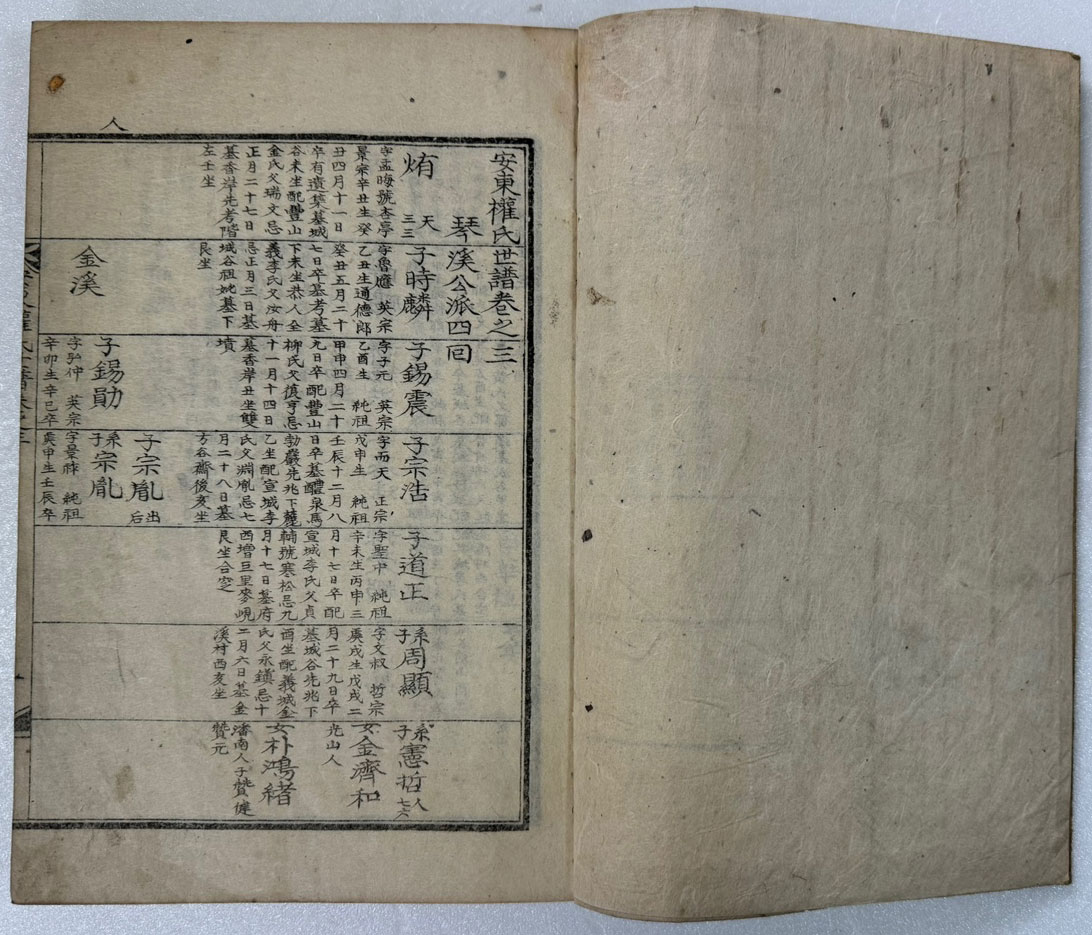 人
安東權氏世譜卷之三
琴溪公派四囘
烠
天三三
字孟晦號杏亭
景宗辛丑生癸
丑四月十一日
卒有遺集墓城
谷未坐配豊山
金氏父瑞文忌
正月二十七日
墓香岸先考階
左壬坐
子時麟
字魯應 英宗
乙丑生通德郞
癸丑五月二十
七日卒墓考墓
下未坐恭人全
義李氏父汝舟
忌正月三日墓
城谷祖妣墓下
艮坐
子錫震
字子元 英宗
乙酉生 純祖
甲申四月二十
九日卒配豊山
柳氏父復亨忌
十一月十四日
墓香岸丑坐雙
墳
子宗浩
字而天 正宗
戊申生 純祖
壬辰十二月八
日卒墓醴泉馬
勃巖先兆下麓
乙坐配宣城李
氏父淵胤忌七
月二十八日墓
方谷齋後亥坐
子道正
字聖中 純祖
辛未生丙申三
月十七日卒配
宣城李氏父貞
輔號寒松忌九
月十七日墓府
西增巨里麥峴
艮坐合窆
系子周顯
字文叔 哲宗
庚戌生戊戌二
月二十九日卒
墓城谷先兆下
酉坐配義城金
氏父永鎭忌十
二月六日墓金
溪村西亥坐
系子憲哲
人七六
女金濟和
光山人
女朴鴻緖
潘南人子贊健
贊元
子宗胤
出后
金溪
子錫勛
字弼仲 英宗
辛卯生辛巳卒
系子宗胤
字景膵 純祖
庚申生壬辰卒